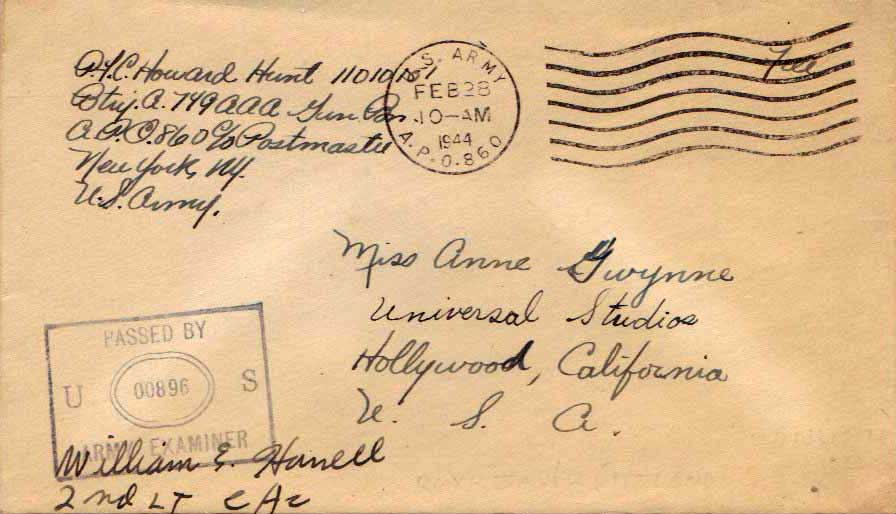 Pfc. Howard Hunt 11010151
Btry. A. 749 AAA Gun Bn.
A.P.O. 860 c/o Postmaster
New York, NY.
U.S. Army.
U.S. ARMY
FEB 28
10-AM
1944
A.P.O. 860
Free
Miss Anne Gwynne
Universal Studios
Hollywood, California
U. S. A.
PASSED BY
U 00896 S
ARMY EXAMINER
William E. Harrell
2nd LT CAC